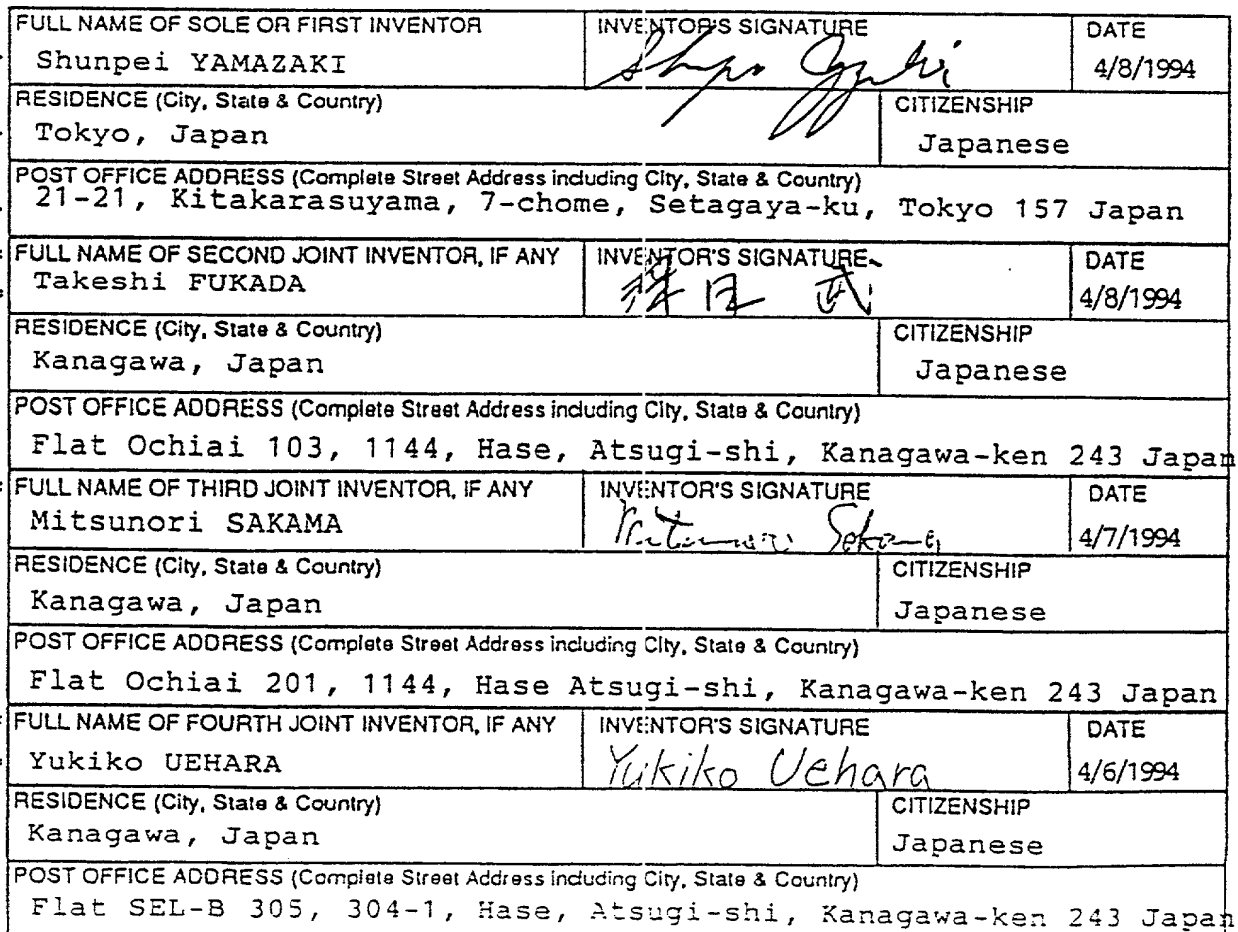 FULL NAME OF SOLE OR FIRST INVENTOR INVENTOR'S SIGNATURE DATE
Shunpei YAMAZAKI 4/8/1994
RESIDENCE (City, State & Country) CITIZENSHIP
Tokyo, Japan Japanese
POST OFFICE ADDRESS (Complete Street Address including City, State & Country)
21-21, Kitakarasuyama, 7-chome, Setagaya-ku, Tokyo 157 Japan
FULL NAME OF SECOND JOINT INVENTOR, IF ANY INVENTOR'S SIGNATURE DATE
Takeshi FUKADA 田 武 4/8/1994
RESIDENCE (City, State & Country) CITIZENSHIP
Kanagawa, Japan Japanese
POST OFFICE ADDRESS (Complete Street Address including City, State & Country)
Flat Ochiai 103, 1144, Hase, Atsugi-shi, Kanagawa-ken 243 Japan
FULL NAME OF THIRD JOINT INVENTOR, IF ANY INVENTOR'S SIGNATURE DATE
Mitsunori SAKAMA 4/7/1994
RESIDENCE (City, State & Country) CITIZENSHIP
Kanagawa, Japan Japanese
POST OFFICE ADDRESS (Complete Street Address including City, State & Country)
Flat Ochiai 201, 1144, Hase Atsugi-shi, Kanagawa-ken 243 Japan
FULL NAME OF FOURTH JOINT INVENTOR, IF ANY INVENTOR'S SIGNATURE DATE
Yukiko UEHARA Yukiko Uehara 4/6/1994
RESIDENCE (City, State & Country) CITIZENSHIP
Kanagawa, Japan Japanese
POST OFFICE ADDRESS (Complete Street Address including City, State & Country)
Flat SEL-B 305, 304-1, Hase, Atsugi-shi, Kanagawa-ken 243 Japan